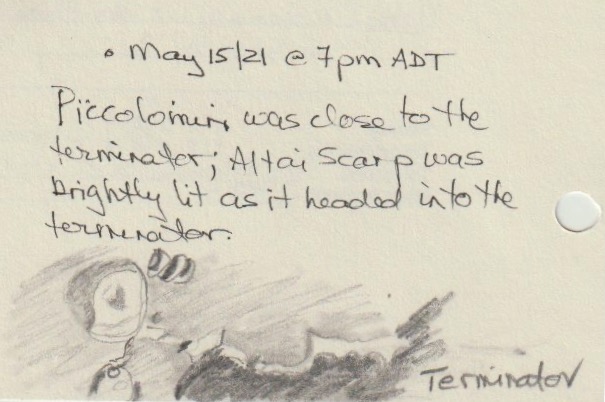 • May 15/21 @ 7pm ADT
Piccolomini was close to the
terminator; Altai Scarp was
brightly lit as it headed into the
terminator.
Terminator